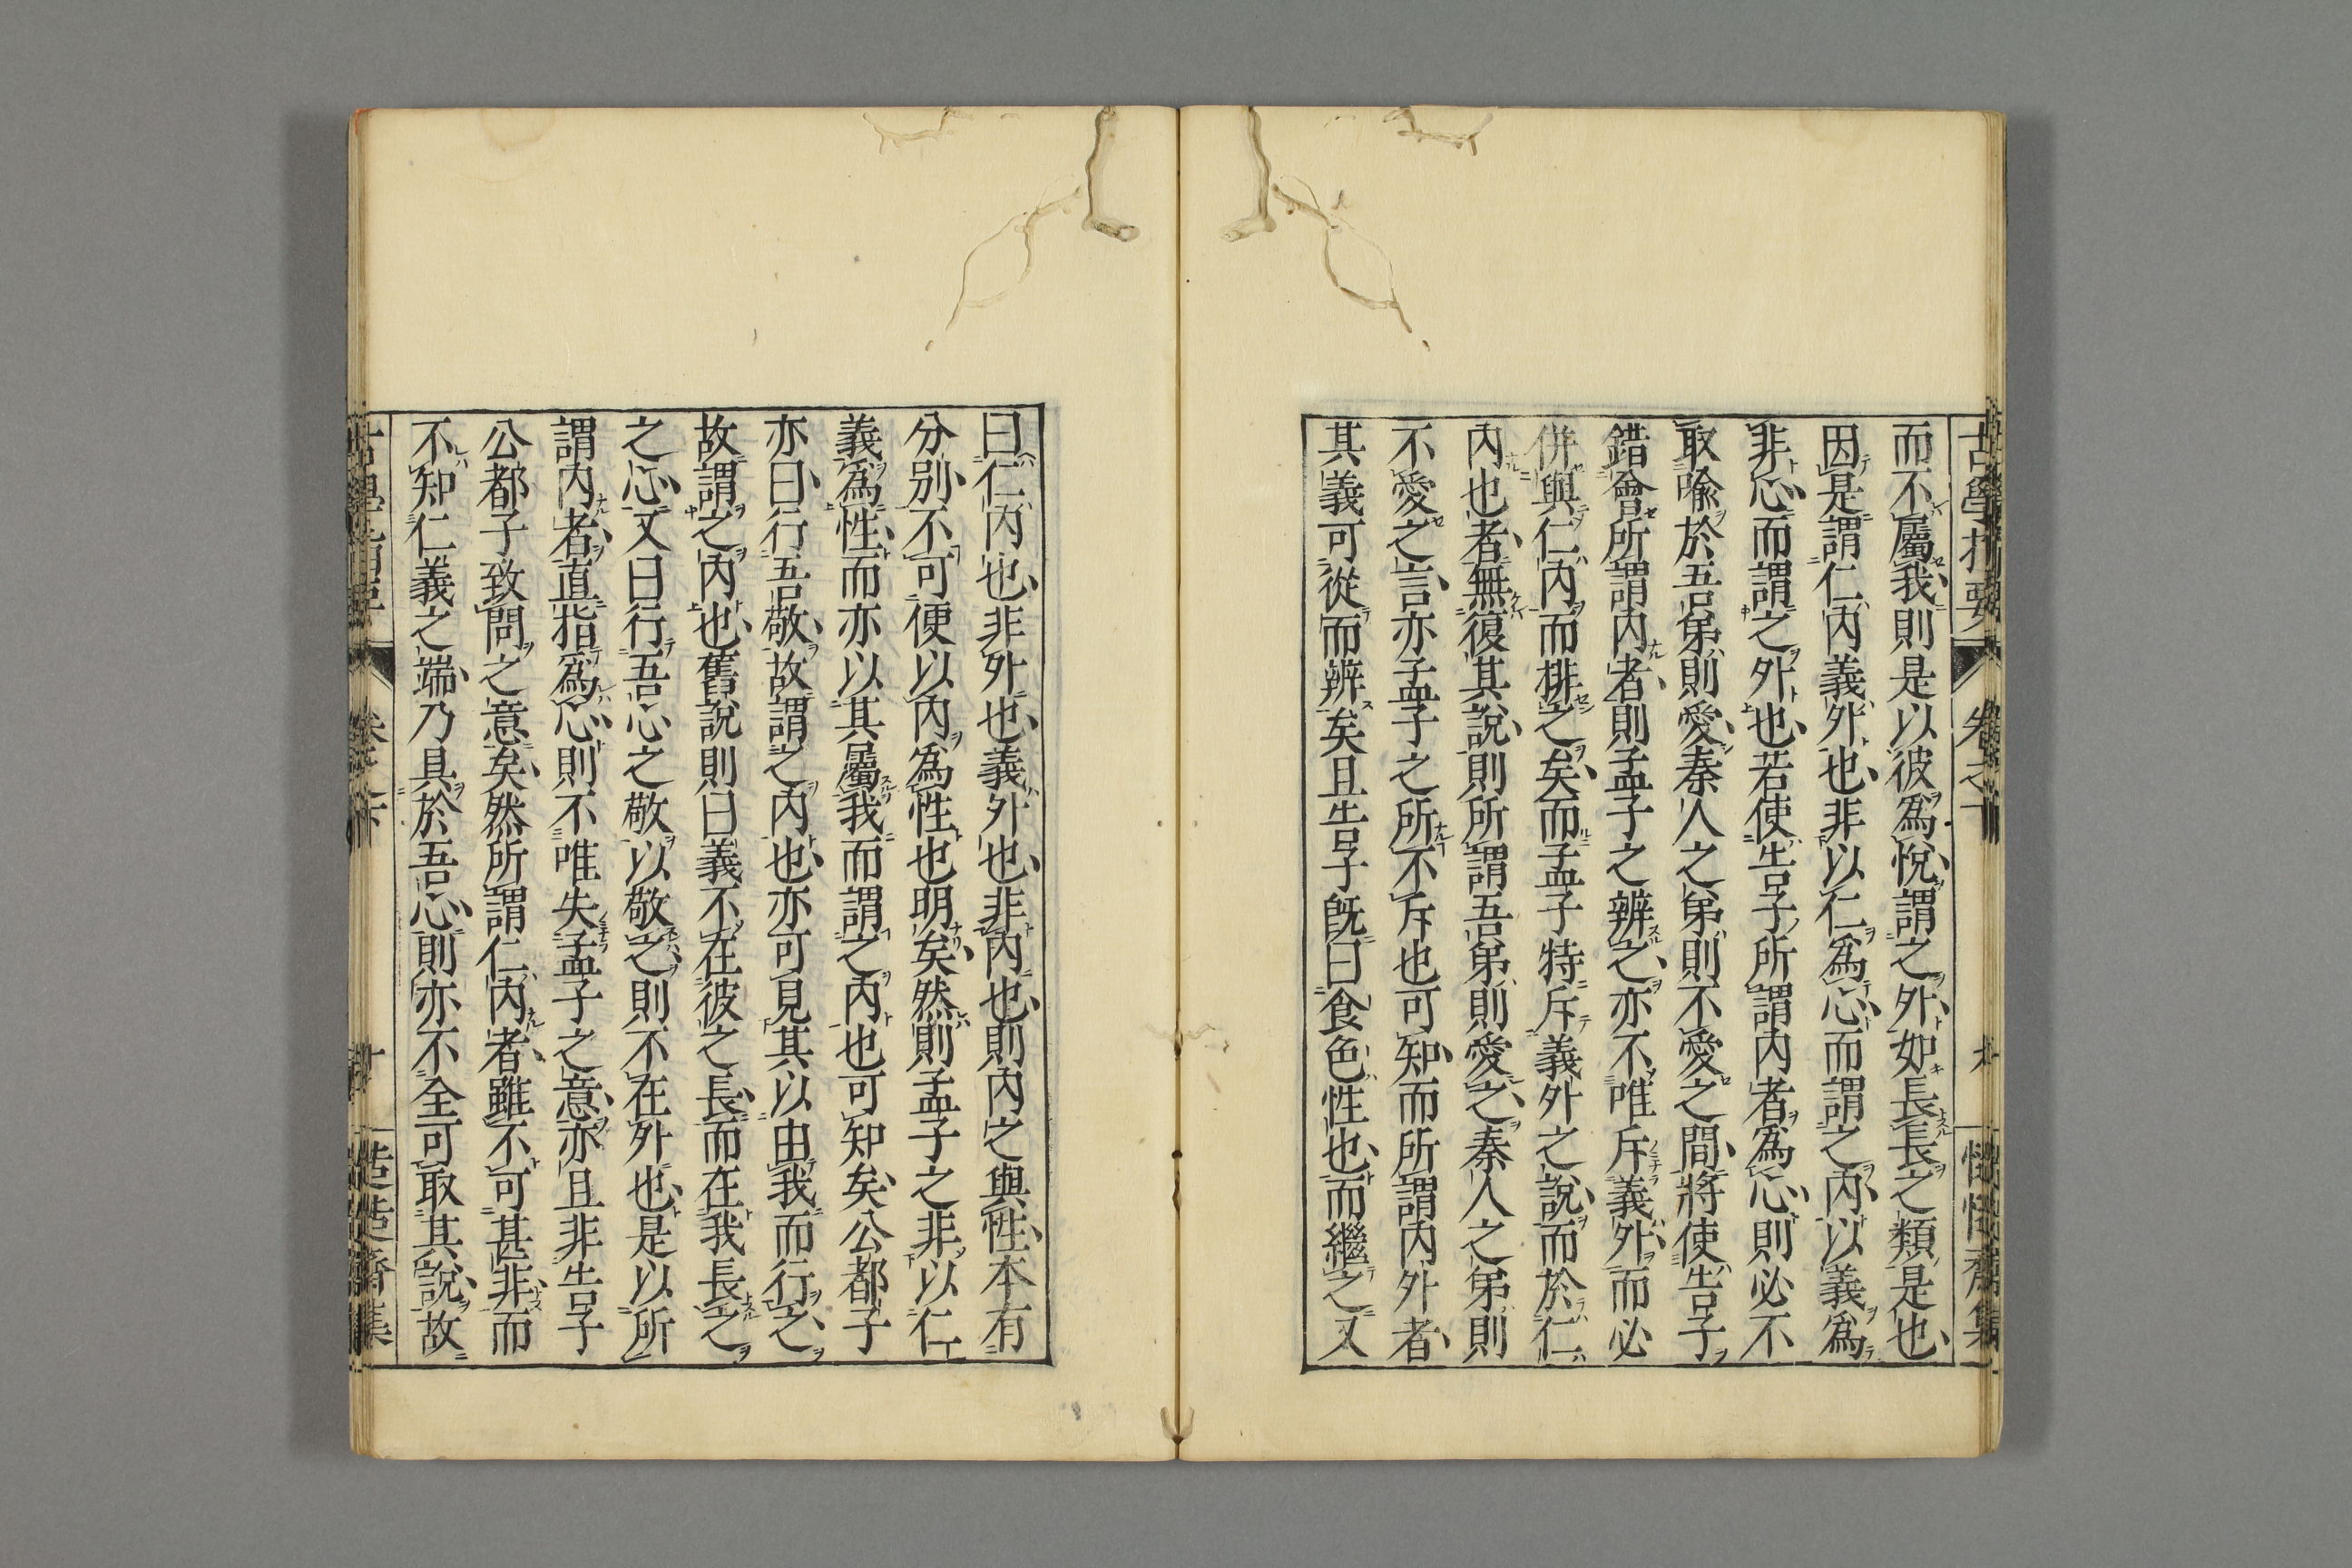 而不屬我則是以彼爲悅謂之外如長長之類是也
因是謂仁內義外也非以仁爲心而謂之內以義爲
非心而謂之外也若使告子所謂內者爲心則必不
取喩於吾弟則愛秦人之弟則不愛之間將使告子
錯會所謂內者則孟子之辨之亦不唯斥義外而必
併與仁內而排之矣而孟子特斥義外之說而於仁
內也者無復其說則所謂吾弟則愛之秦人之弟則
不愛之言亦孟子之所不斥也可知而所謂內外者
其義可從而辨矣且告子旣曰食色性也而繼之又
曰仁內也非外也義外也非內也則內之與性本有
分別不可便以內爲性也明矣然則孟子之非以仁
義爲性而亦以其屬我而謂之內也可知矣公都子
亦曰行吾敬故謂之內也亦可見其以由我而行之
故謂之內也舊說則曰義不在彼之長而在我長之
之心又曰行吾心之敬以敬之則不在外也是以所
謂內者直指爲心則不唯失孟子之意亦且非告子
公都子致問之意矣然所謂仁內者雖不可甚非而
不知仁義之端乃具於吾心則亦不全可取其說故